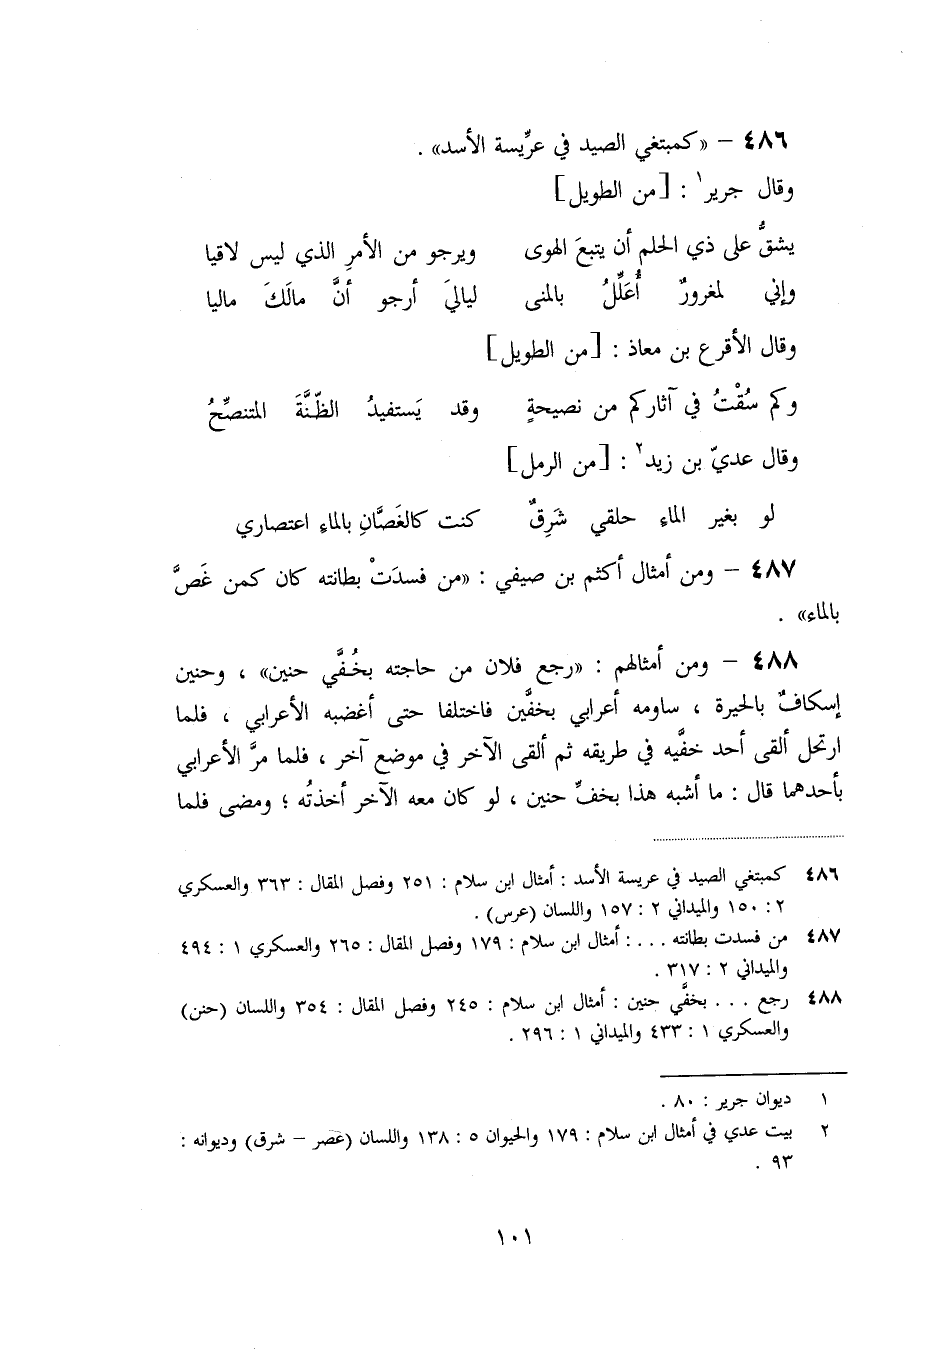 ٤٨٦ – «كمبتغي الصيد في عرِّيسة الأسد» .
وقال جرير١ : [من الطويل]
يشقُّ على ذي الحلم أن يتبعَ الهوى ويرجو من الأمرِ الذي ليس لاقيا
وإني لمغرورٌ أُعَلِّلُ بالمنى ليالي أرجو أنَّ مالَكَ ماليا
وقال الأقرع بن معاذ : [من الطويل]
وكم سُقْتُ في آثاركم من نصيحةٍ وقد يَستفيدُ الظِّنَّةَ المتنصِّحُ
وقال عديّ بن زيد٢ : [من الرمل]
لو بغير الماءِ حلقي شَرِقٌ كنت كالغَصَّانِ بالماءِ اعتصاري
٤٨٧ – ومن أمثال أكثم بن صيفي : «من فسدَتْ بطانته كان كمن غَصَّ
بالماء» .
٤٨٨ – ومن أمثالهم : «رجع فلان من حاجته بخُفَّي حنين» ، وحنين
إسكافٌ بالحيرة ، ساومه أعرابي بخفَّين فاختلفا حتى أغضبه الأعرابي ، فلما
ارتحل ألقى أحد خفَّيه في طريقه ثم ألقى الآخر في موضع آخر ، فلما مرَّ الأعرابي
بأحدهما قال : ما أشبه هذا بخفِّ حنين ، لو كان معه الآخر أخذتُه ؛ ومضى فلما
٤٨٦ كمبتغي الصيد في عريسة الأسد : أمثال ابن سلام : ٢٥١ وفصل المقال : ٣٦٣ والعسكري
٢ : ١٥٠ والميداني ٢ : ١٥٧ واللسان (عرس) .
٤٨٧ من فسدت بطانته . . . : أمثال ابن سلام : ١٧٩ وفصل المقال : ٢٦٥ والعسكري ١ : ٤٩٤
والميداني ٢ : ٣١٧ .
٤٨٨ رجع . . . بخفَّي حنين : أمثال ابن سلام : ٢٤٥ وفصل المقال : ٣٥٤ واللسان (حنن)
والعسكري ١ : ٤٣٣ والميداني ١ : ٢٩٦ .
١ ديوان جرير : ٨٠ .
٢ بيت عدي في أمثال ابن سلام : ١٧٩ والحيوان ٥ : ١٣٨ واللسان (عصر – شرق) وديوانه :
٩٣ .
١٠١